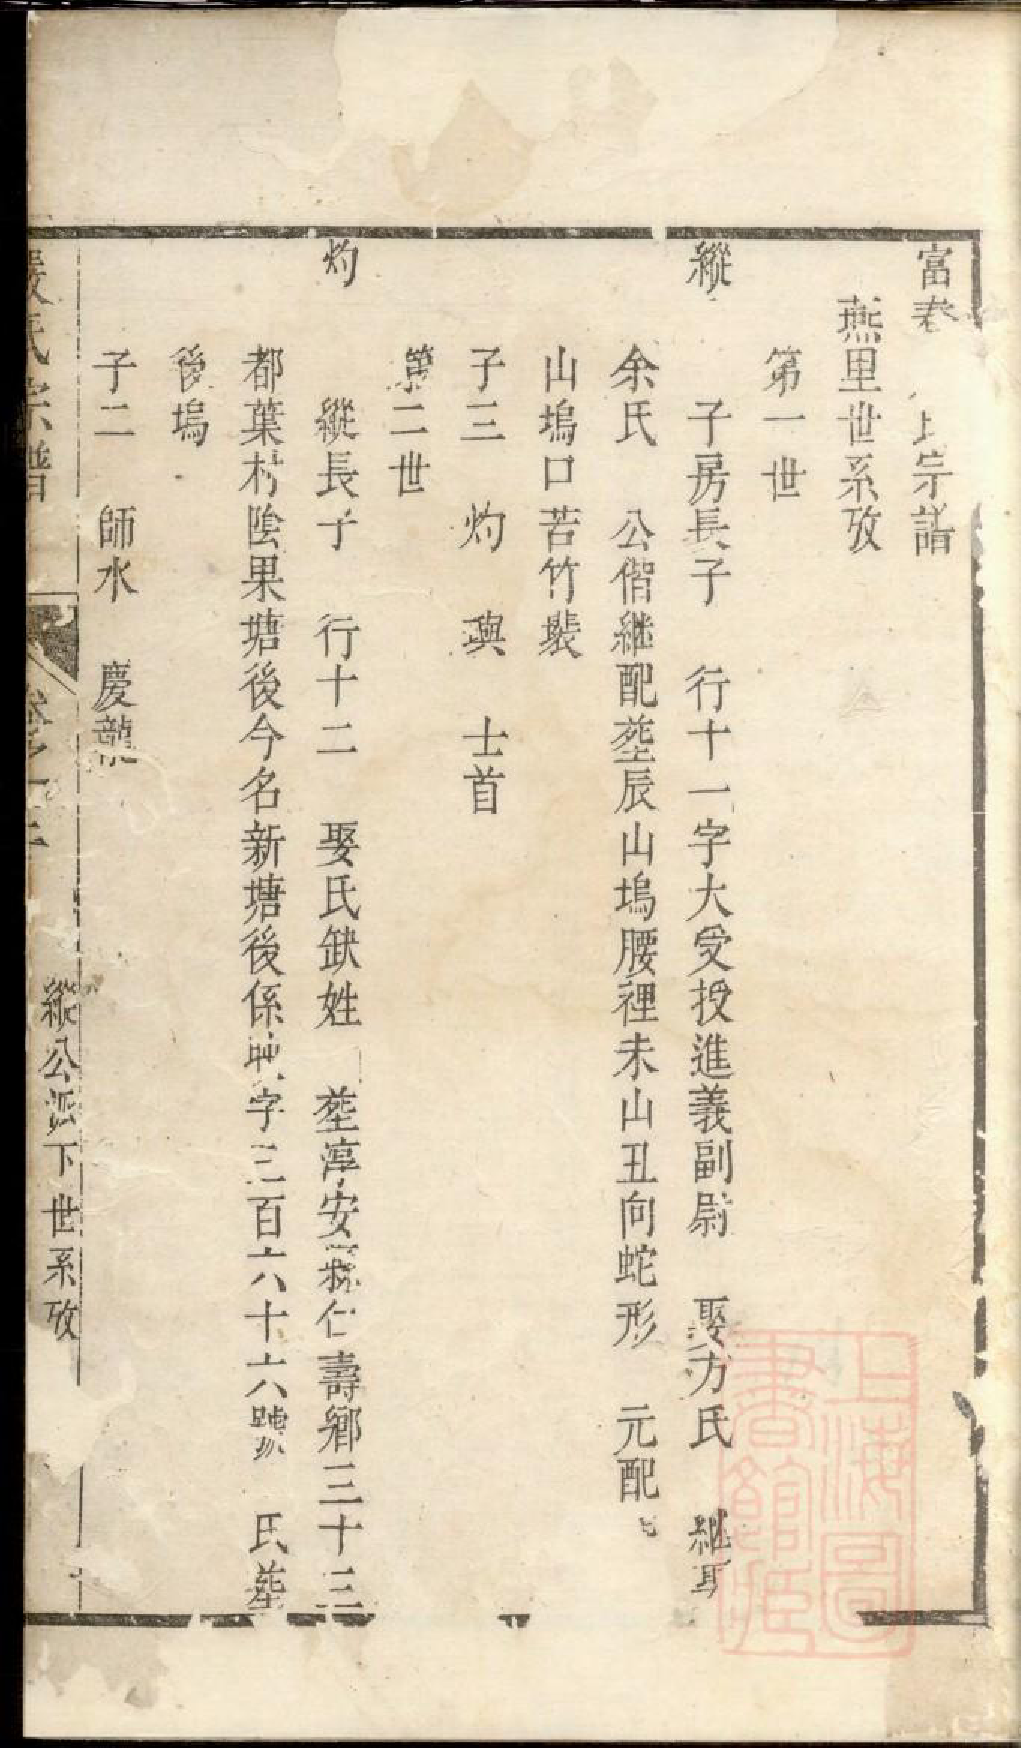 富春 氏宗譜
燕里世系攷
第一世
縱 子房長子 行十一字大受授進義副尉 娶方氏 繼娶
余氏 公偕継配塟辰山塢腰裡未山丑向蛇形 元配
山塢口苦竹塘
子三 灼 璵 士首
第二世
灼 縱長子 行十二 娶氏缺姓 塟淳安縣仁壽鄉三十三
都葉村陰果塘後今名新塘後係 字三百六十六號 氏塟
後塢
子二 師水 慶龍
嚴氏宗譜 卷之 縱公派下世系攷
上海圖書館藏